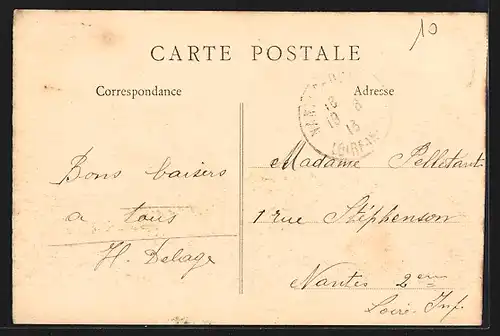 10
CARTE POSTALE
Correspondance
Adresse
18 8
13
LOIRE-INF
Bons baisers
a tous
H. Delage
Madame Pelletant
1 rue Stéphenson
Nantes 2eme
Loire-Inf